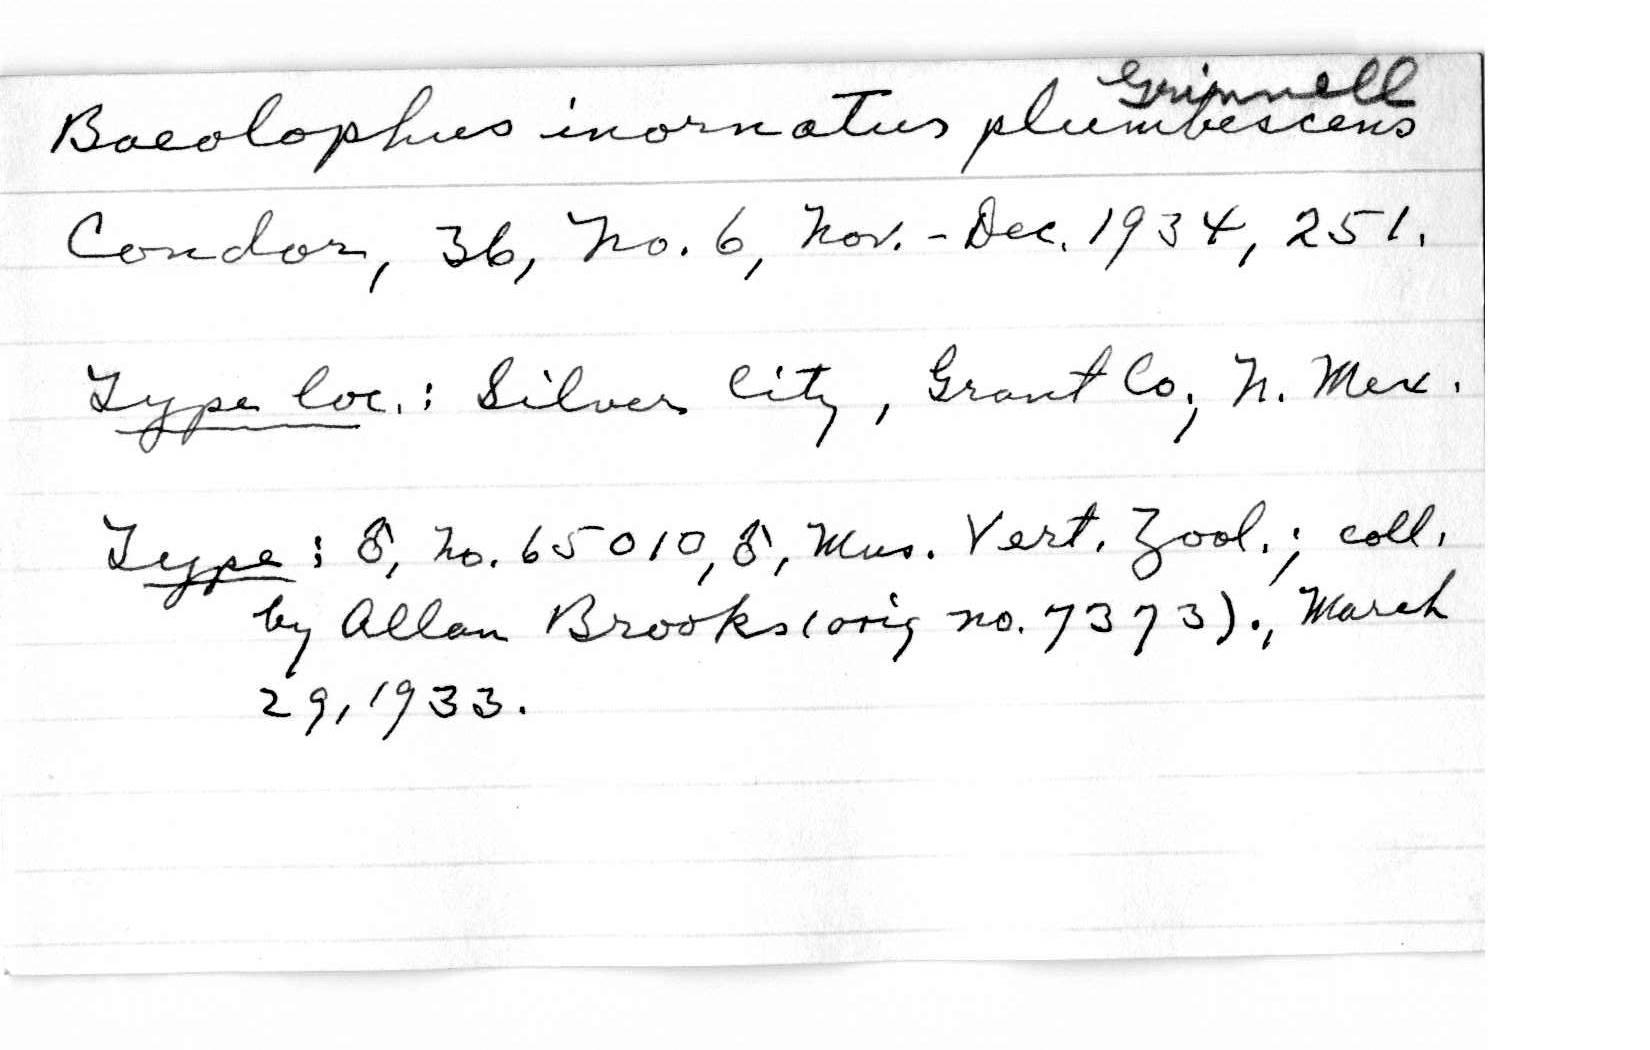 Grinnell
Baeolophus inornatus plumbescens
Condor, 36, No. 6, Nov.-Dec. 1934, 251.
Type loc.: Silver City, Grant Co., N. Mex.
Type: ♂, No. 65010, ♂, Mus. Vert. Zool.; coll.
by Allan Brooks (orig no. 7373)., March
29, 1933.